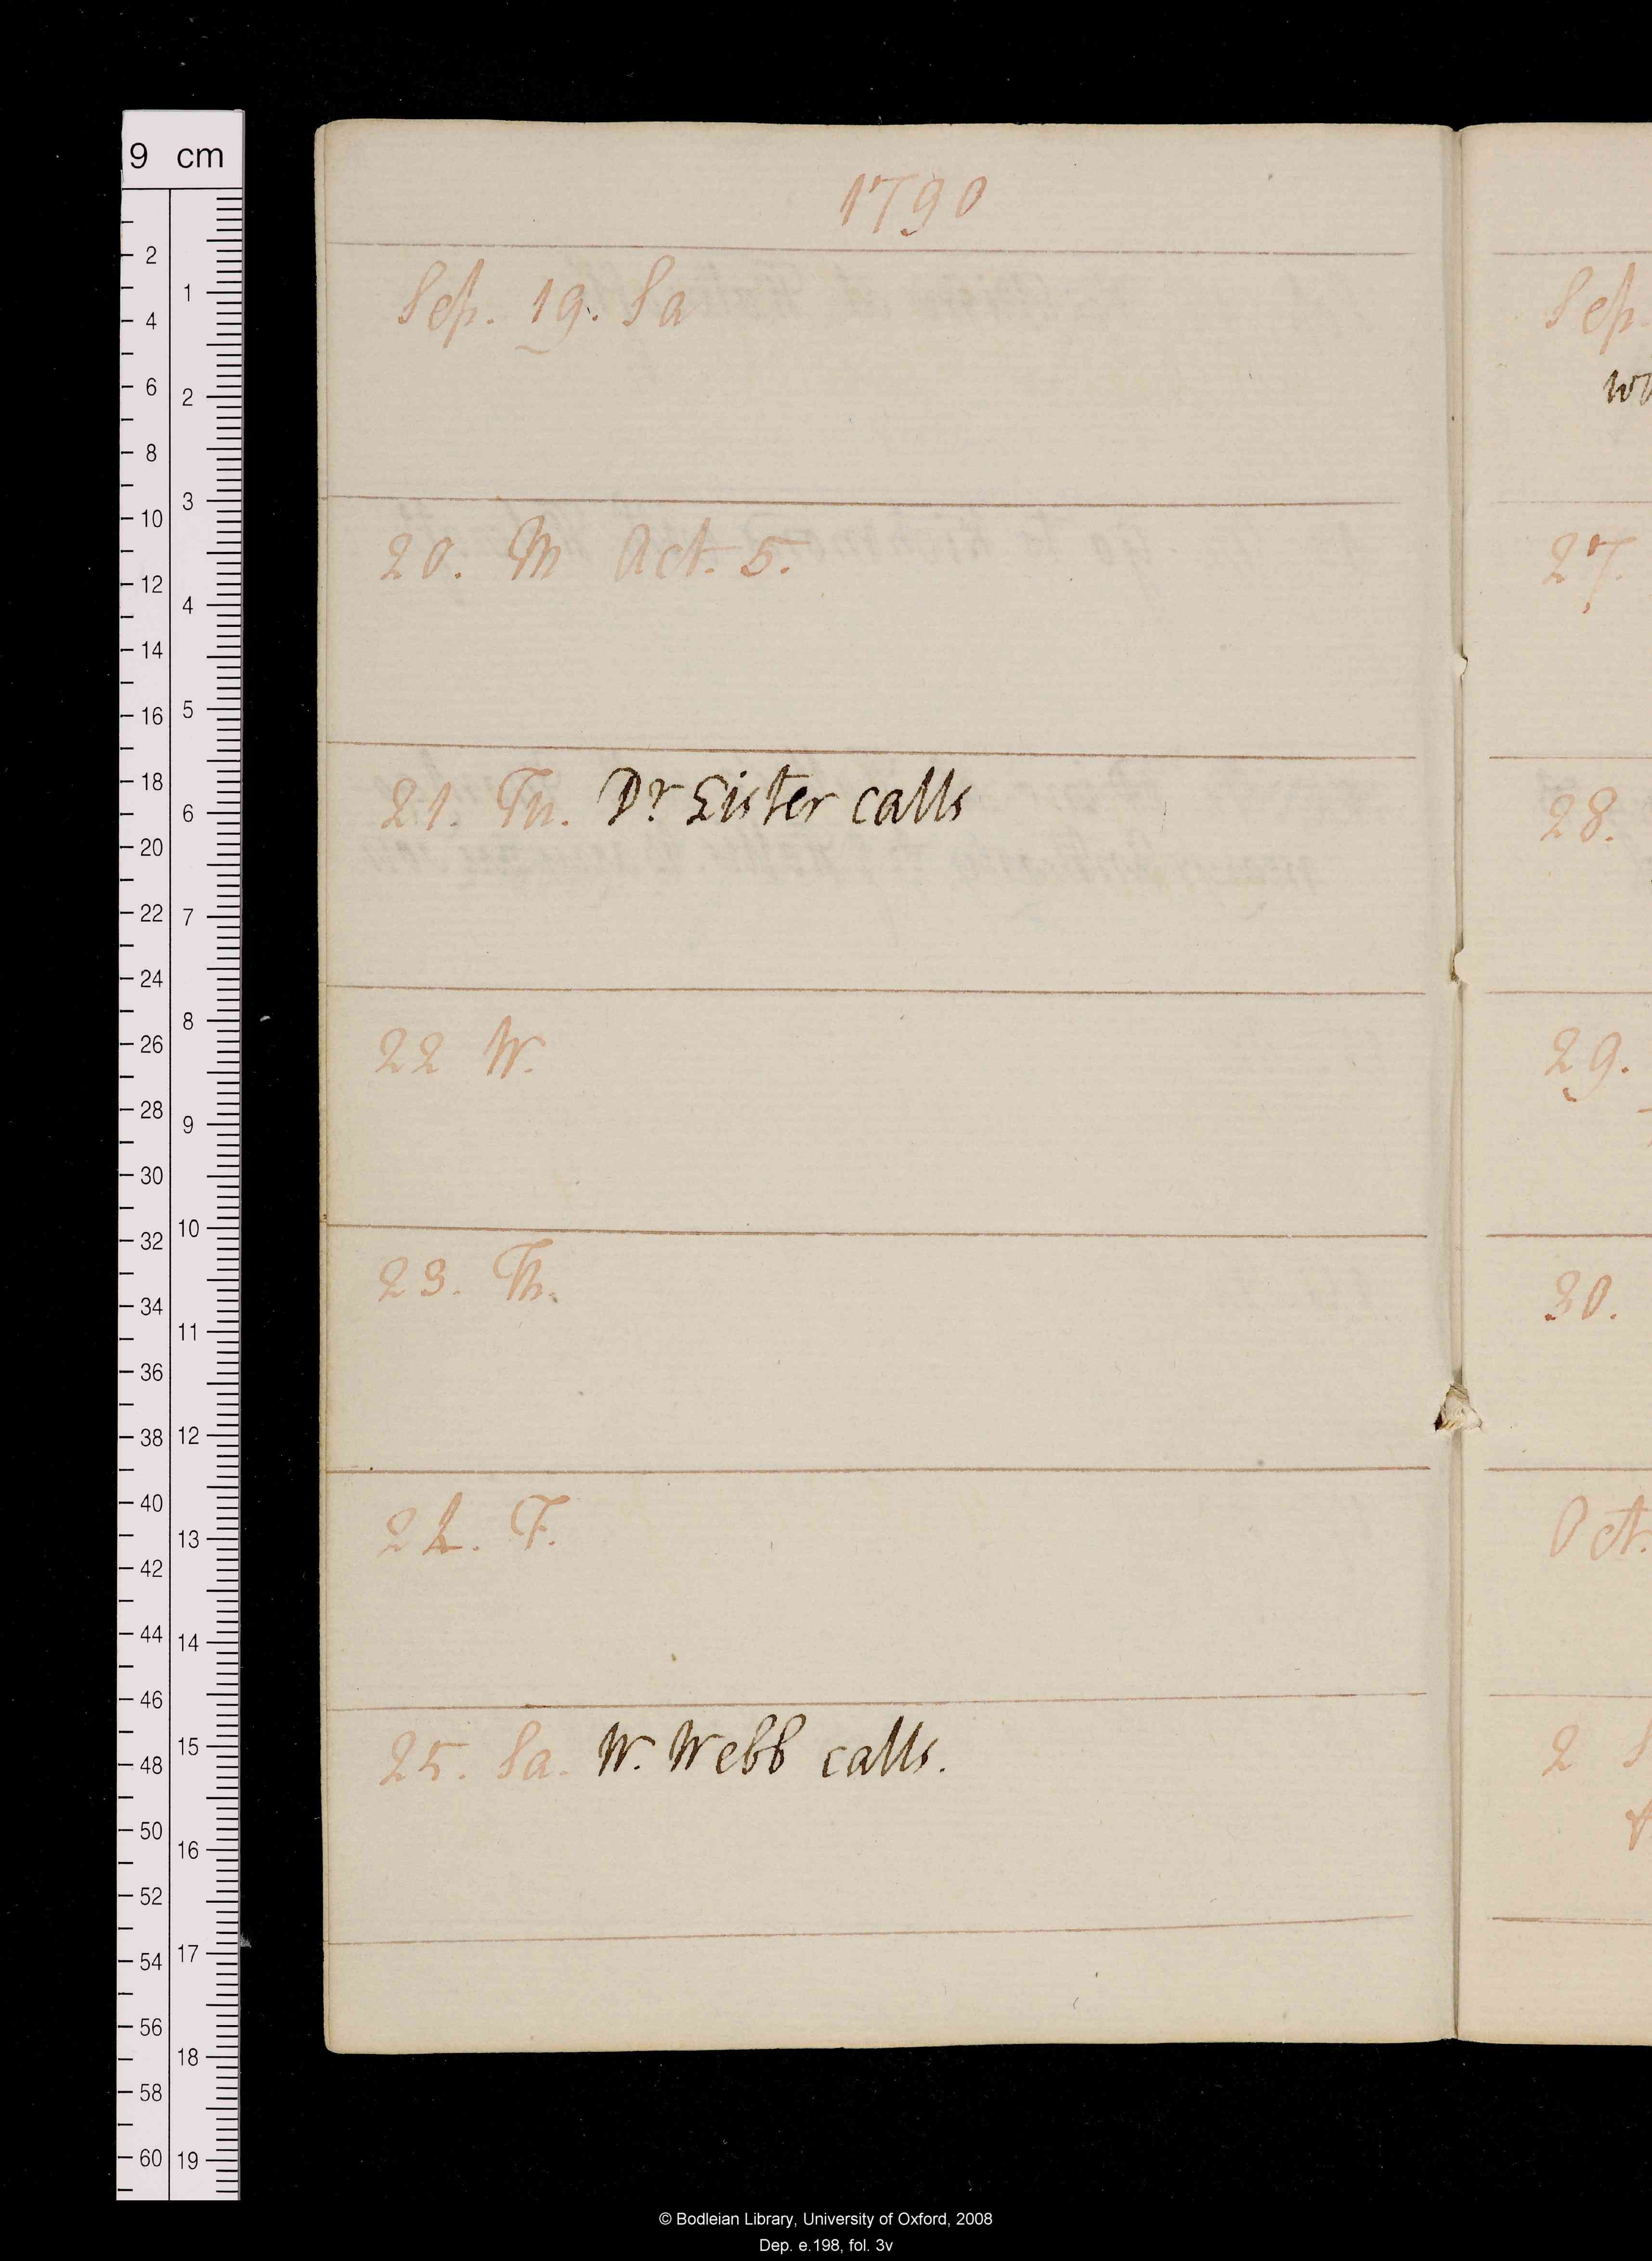 9 cm
2
4
6
8
10
12
14
16
18
20
22
24
26
28
30
32
34
36
38
40
42
44
46
48
50
52
54
56
58
60
1
2
3
4
5
6
7
8
9
10
11
12
13
14
15
16
17
18
19
1790
Sep. 19. Sa
20. M Act. 5.
21. Tu. Dr Lister calls
22 W.
23. Th.
24. F.
25. Sa. W. Webb calls.
Sep.
27.
28.
29.
30.
Oct.
2
© Bodleian Library, University of Oxford, 2008
Dep. e.198, fol. 3v